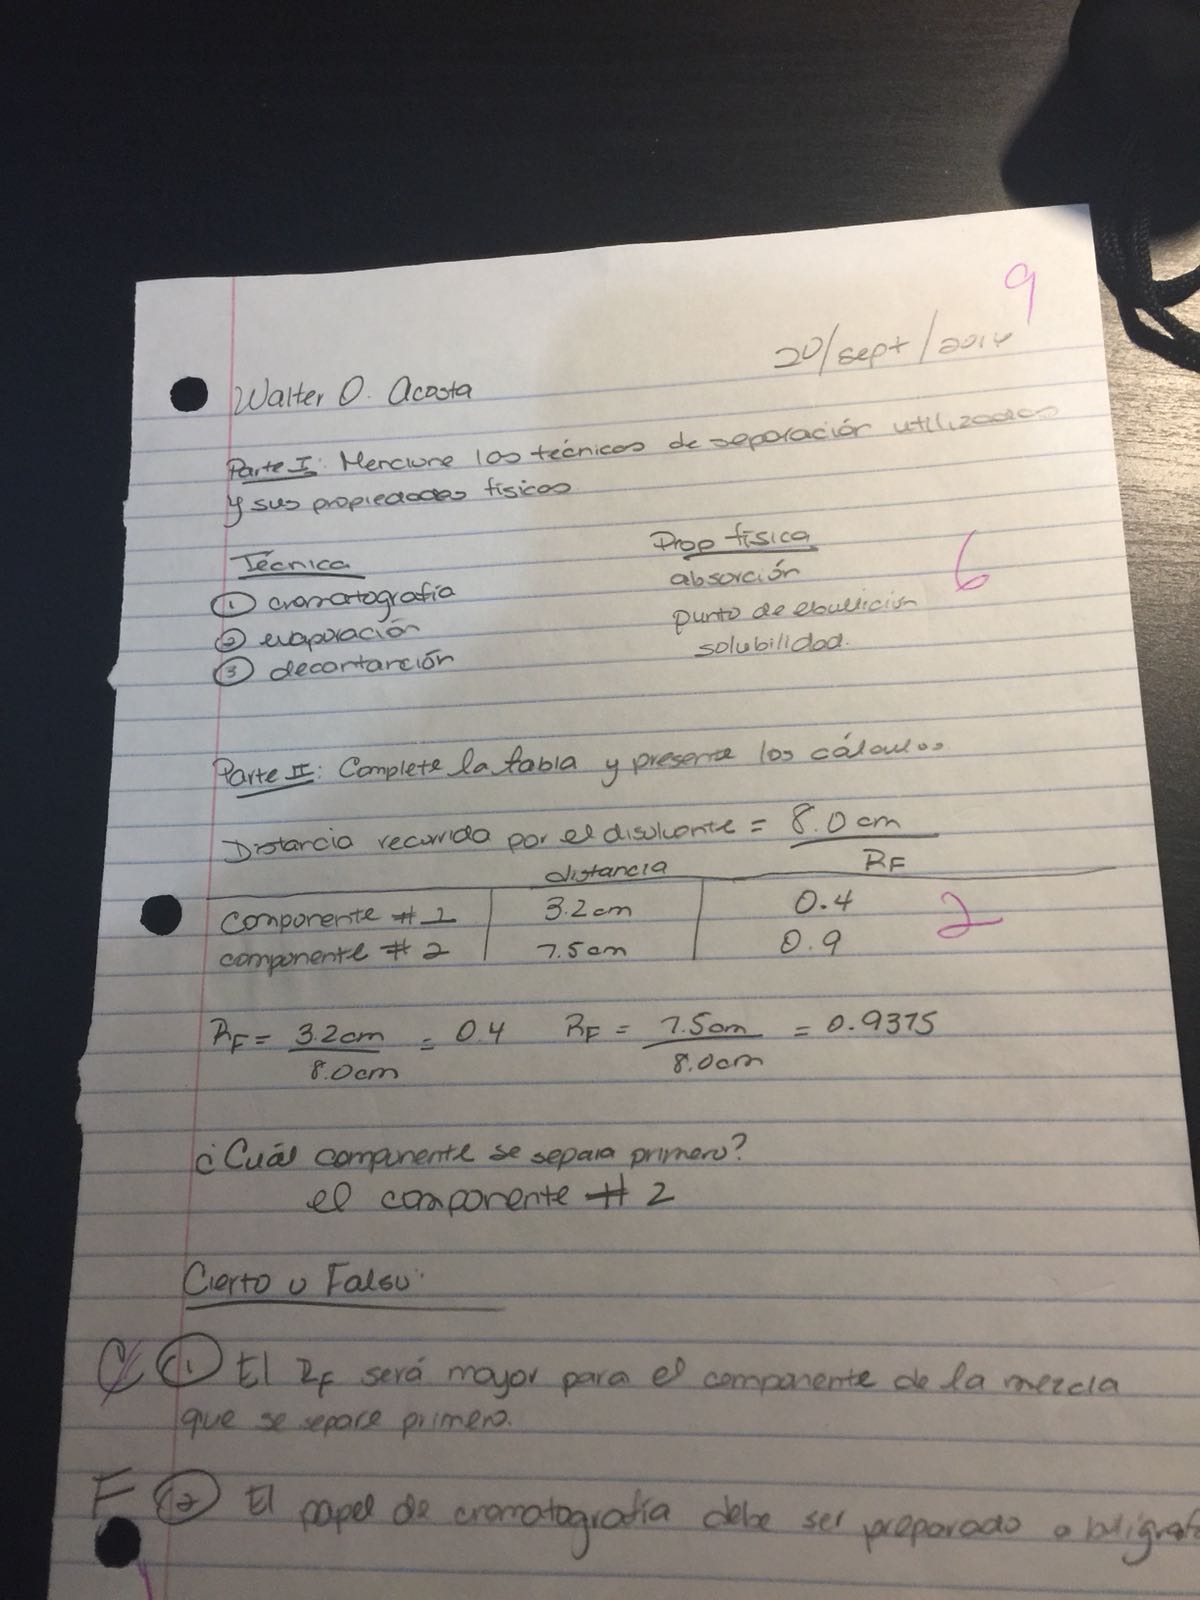 9
20/sept/2014
Walter O. Acosta
Parte I: Mencione las técnicas de separación utilizadas
y sus propiedades físicas
Técnica Prop física
① cromatografía absorción 6
② evaporación punto de ebullición
③ decantanción solubilidad.
Parte II: Complete la tabla y presente los cálculos.
Distancia recorrida por el disolvente = 8.0 cm
distancia RF
Componente # 1 3.2 cm 0.4 2
componente # 2 7.5 cm 0.9
RF = 3.2cm = 0.4 RF = 7.5cm = 0.9375
8.0cm 8.0cm
¿Cuál componente se separa primero?
el componente # 2
Cierto o Falso:
C ① El RF será mayor para el componente de la mezcla
que se separe primero.
F ② El papel de cromatografía debe ser preparado a